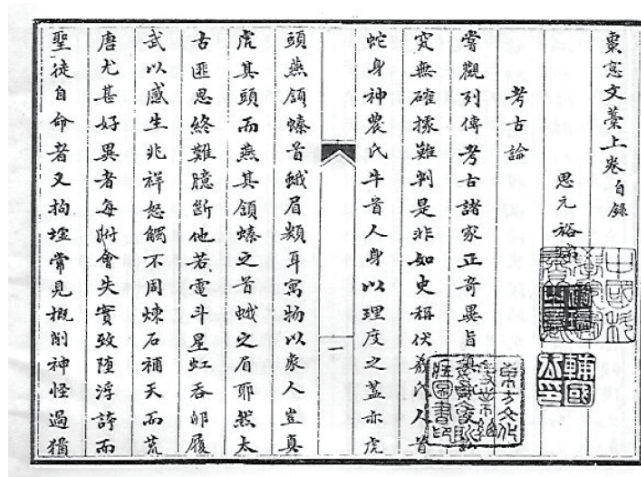 棗窓文藁上卷自錄
思元裕
考古論
嘗觀列傳考古諸家正奇異旨
究無確據難判是非如史稱伏羲氏人首
蛇身神農氏牛首人身以理度之蓋亦虎
頭燕頷螓首蛾眉類耳寓物以象人豈真
虎其頭而燕其頷螓之首蛾之眉耶然太
古匪思終難臆斷他若電斗星虹吞卵履
武以感生兆祥怒觸不周煉石補天而荒
唐尤甚好異者每附會失實致墮浮誇而
聖徒自命者又拘墟常見概削神怪過猶
一
輔國